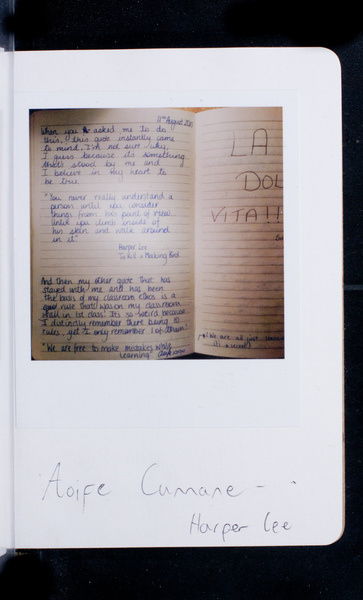 11th August 2015
When you asked me to do
this, this quote instantly came
to mind. I'm not sure why,
I guess because its something
that's stood by me and
I believe in my heart to
be true
"You never really understand a
person until you consider
things from his point of view
until you climb inside of
his skin and walk around
in it"
Harper Lee
To Kill a Mocking Bird
And then my other quote that has
stayed with me and has been
the basis of my classroom ethos is a
rule that was on my classroom
wall in 1st class. Its so weird because
I distinctly remember there being 10
rules, yet I only remember 1 of them!
"We are free to make mistakes while
learning"
LA
DOL
VITA!!
We are all just
it's a
Aoife Cunnane -
Harper Lee